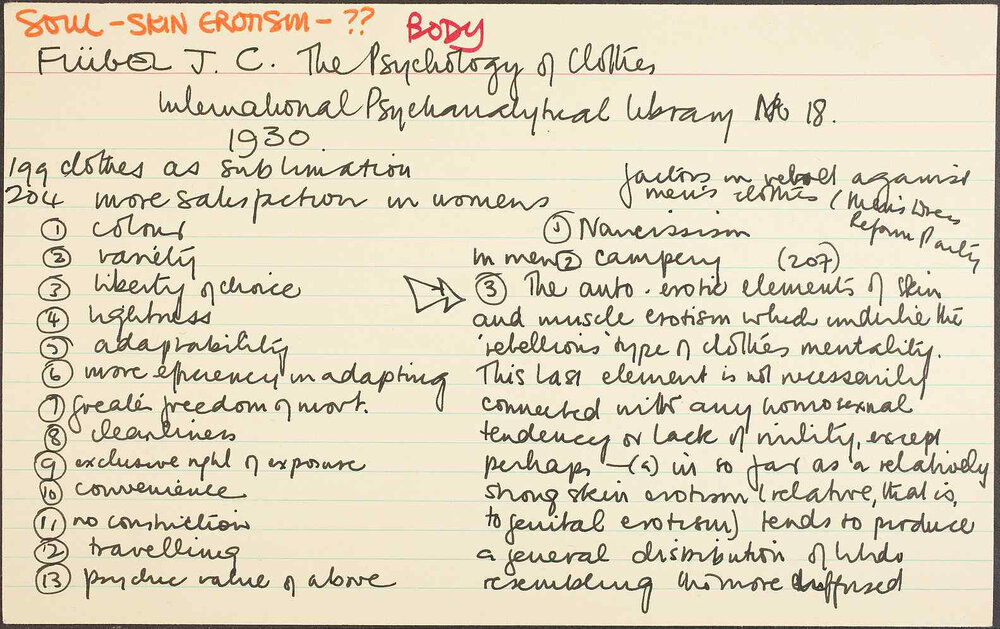 SOUL - SKIN EROTISM - ??
BODY
Flübel J. C. The Psychology of Clothes
International Psychanalytical Library No 18.
1930.
199 clothes as sublimation
204 more satisfaction in womens
① colour
② variety
③ liberty of choice
④ lightness
⑤ adaptability
⑥ more efficiency in adapting
⑦ greater freedom of movt.
⑧ cleanliness
⑨ exclusive right of exposure
⑩ convenience
⑪ no constriction
⑫ travelling
⑬ psychic value of above
factors in revolt against
men's clothes (Men's Dress
Reform Party
① Narcissism
in men ② campery (207)
③ The auto-erotic elements of skin
and muscle erotism which underlie the
'rebellious' type of clothes mentality.
This last element is not necessarily
connected with any homosexual
tendency or lack of virility, except
perhaps - (a) in so far as a relatively
strong skin erotism (relative, that is,
to genital erotism) tends to produce
a general distribution of libido
resembling the more diffused